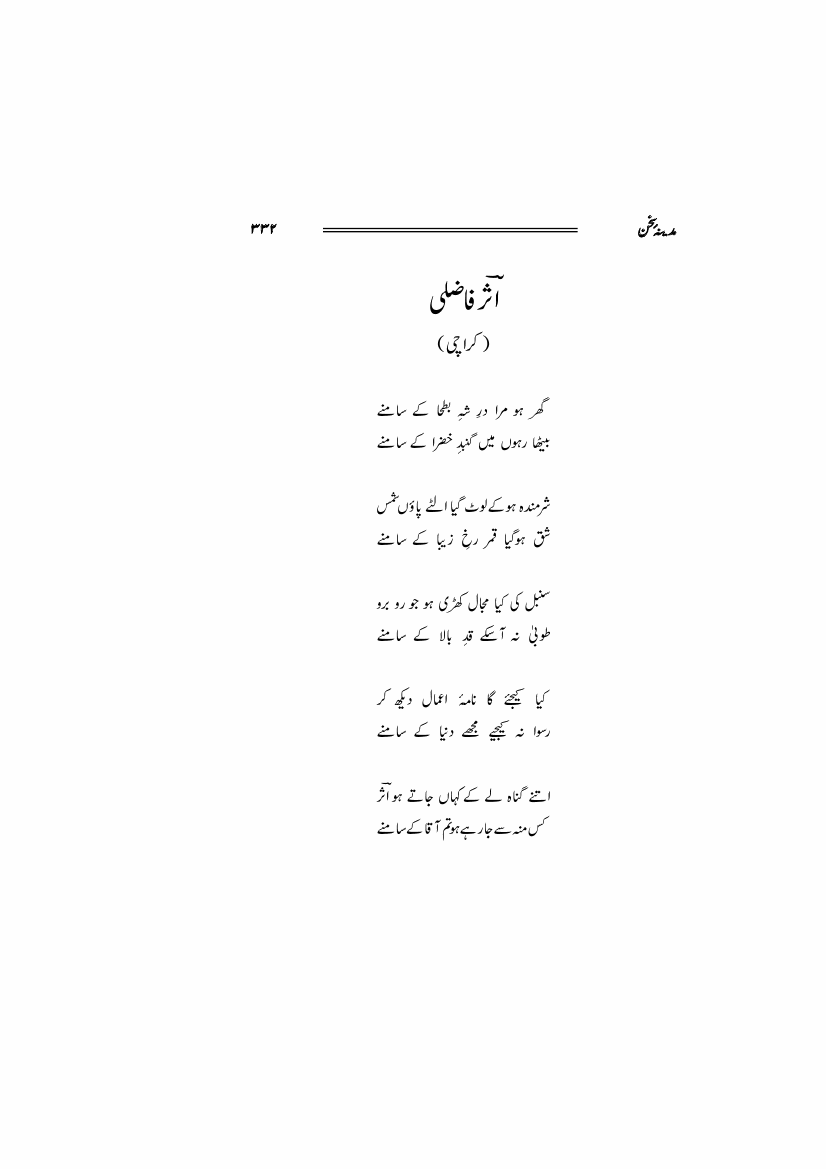 مدینۂ سخن ۳۳۲
اثرؔ فاضلی
(کراچی)
گھر ہو مرا درِ شہِ بطحا کے سامنے
بیٹھا رہوں میں گنبدِ خضرا کے سامنے
شرمندہ ہوکے لوٹ گیا الٹے پاؤں شمس
شق ہوگیا قمر رخِ زیبا کے سامنے
سنبل کی کیا مجال کھڑی ہو جو رو برو
طوبیٰ نہ آسکے قدِ بالا کے سامنے
کیا کیجئے گا نامۂ اعمال دیکھ کر
رسوا نہ کیجیے مجھے دنیا کے سامنے
اتنے گناہ لے کے کہاں جاتے ہو اثرؔ
کس منہ سے جارہے ہو تم آقا کے سامنے